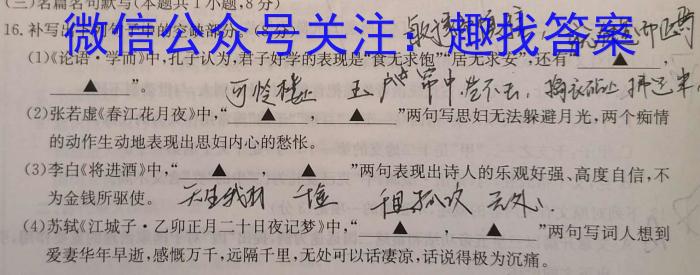 (三)名篇名句默写(本题共1小题,8分)
16.补写出
微信公众号关注:趣找答案
(1)《论语·学而》中,孔子认为,君子好学的表现是“食无求饱”“居无求安”,还有“▲
▲”。
可怜楼上 玉户帘中 卷不去, 捣衣砧上 拂还来
(2)张若虚《春江花月夜》中,“▲,▲”两句写思妇无法躲避月光,两个痴情
的动作生动地表现出思妇内心的愁怅。
(3)李白《将进酒》中,“▲,▲”两句表现出诗人的乐观好强、高度自信,不
为金钱所驱使。
天生我材 千金
(4)苏轼《江城子·乙卯正月二十日夜记梦》中,“▲,▲”两句写词人想到
爱妻华年早逝,感慨万千,远隔千里,无处可以话凄凉,话说得极为沉痛。